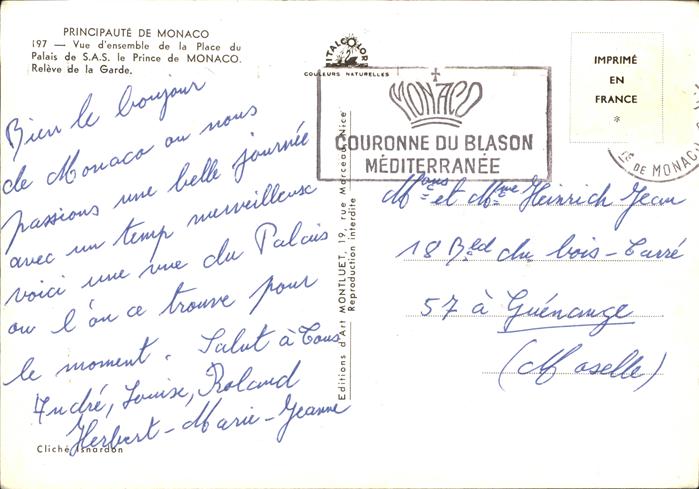 PRINCIPAUTÉ DE MONACO
197 — Vue d'ensemble de la Place du
Palais de S.A.S. le Prince de MONACO.
Relève de la Garde.
Bien le bonjour
de Monaco ou nous
passions une belle journée
avec un temp merveilleuse
voici une vue du Palais
ou l'on ce trouve pour
le moment. Salut à Tous
André, Louise, Roland
Herbert - Marie-Jeanne
Cliché Isnardon
ITALCOLOR
COULEURS NATURELLES
MONACO
COURONNE DU BLASON
MÉDITERRANÉE
Editions d'Art MONTLUET, 19, rue Marceau, Nice
Reproduction interdite
IMPRIMÉ
EN
FRANCE
*
DE MONACO
et Mme Heinrich Jean
18 Bled du bois-Carré
57 à Guénange
(Moselle)